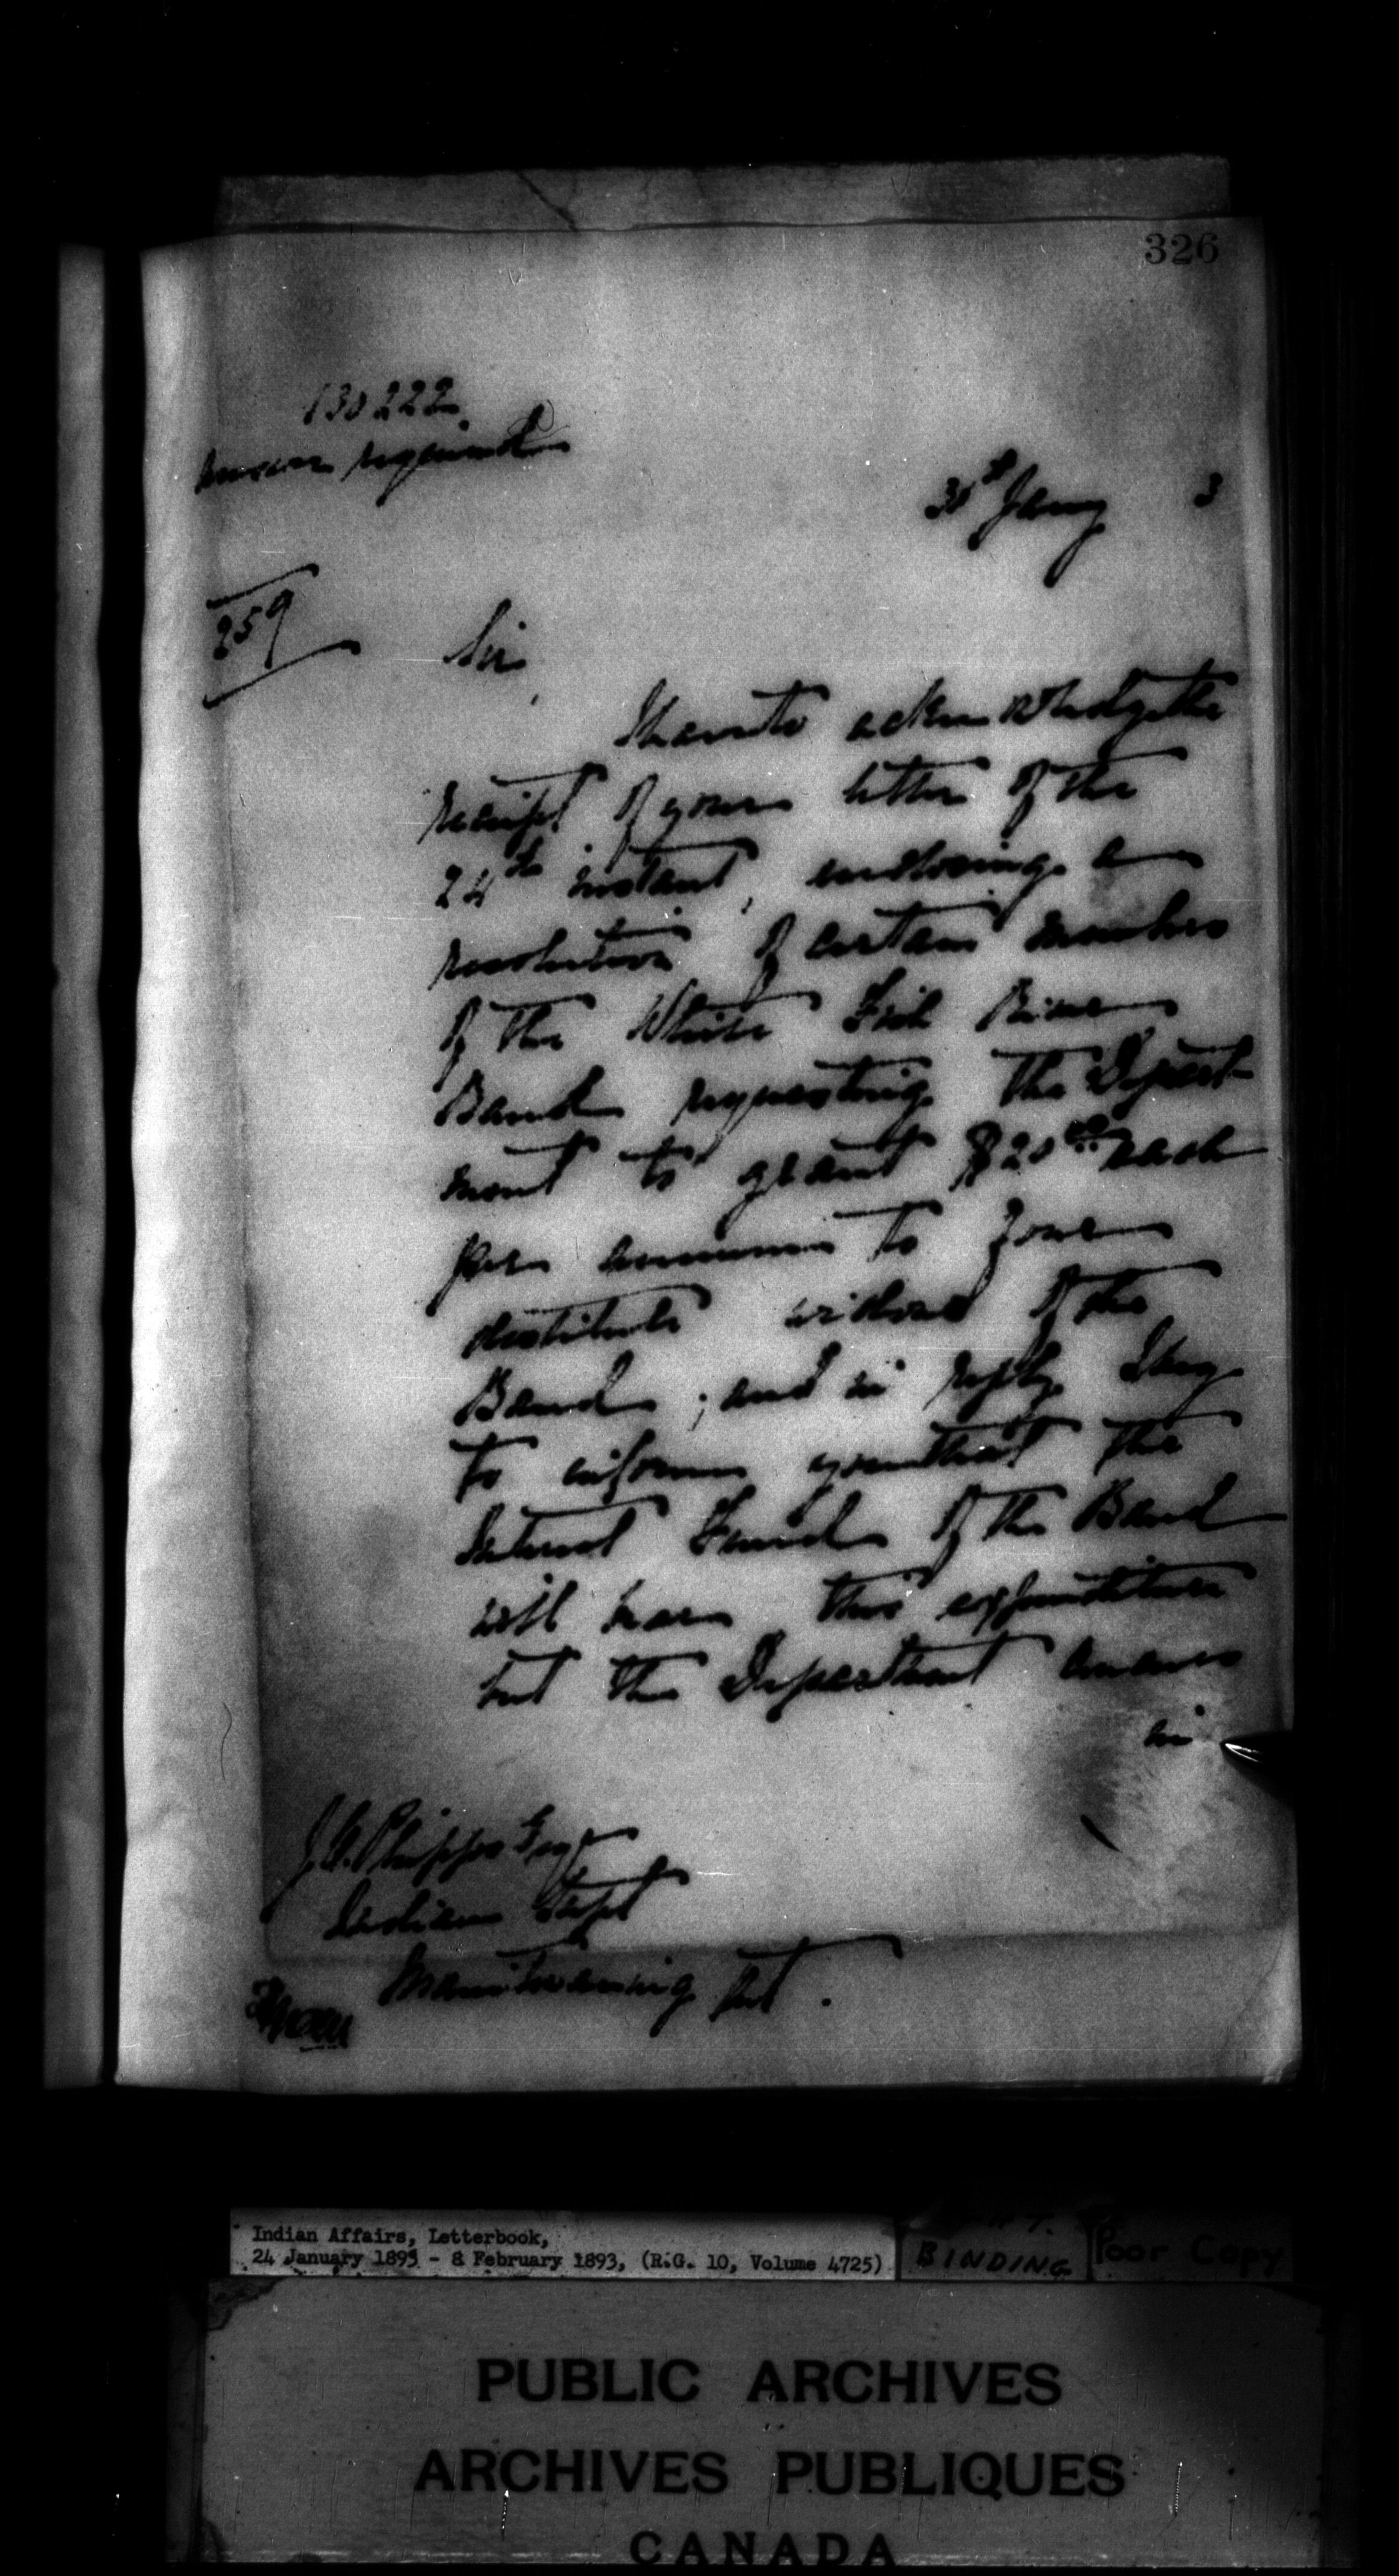 326
130222
Answer required
30th Jany 3
259
Sir,
I have to acknowledge the
receipt of your letter of the
24th instant, enclosing a
resolution of certain members
of the White Fish River
Band requesting the Depart-
ment to grant $20.00 each
per annum to four
destitute widows of the
Band; and in reply I beg
to inform you that the
Interest Fund of the Band
will bear this expenditure
but the Department
in
J.C. Phipps Esqr
Indian Supt
Manitowaning Ont.
Indian Affairs, Letterbook,
24 January 1893 - 8 February 1893, (R.G. 10, Volume 4725)
BINDING
Poor Copy
PUBLIC ARCHIVES
ARCHIVES PUBLIQUES
CANADA